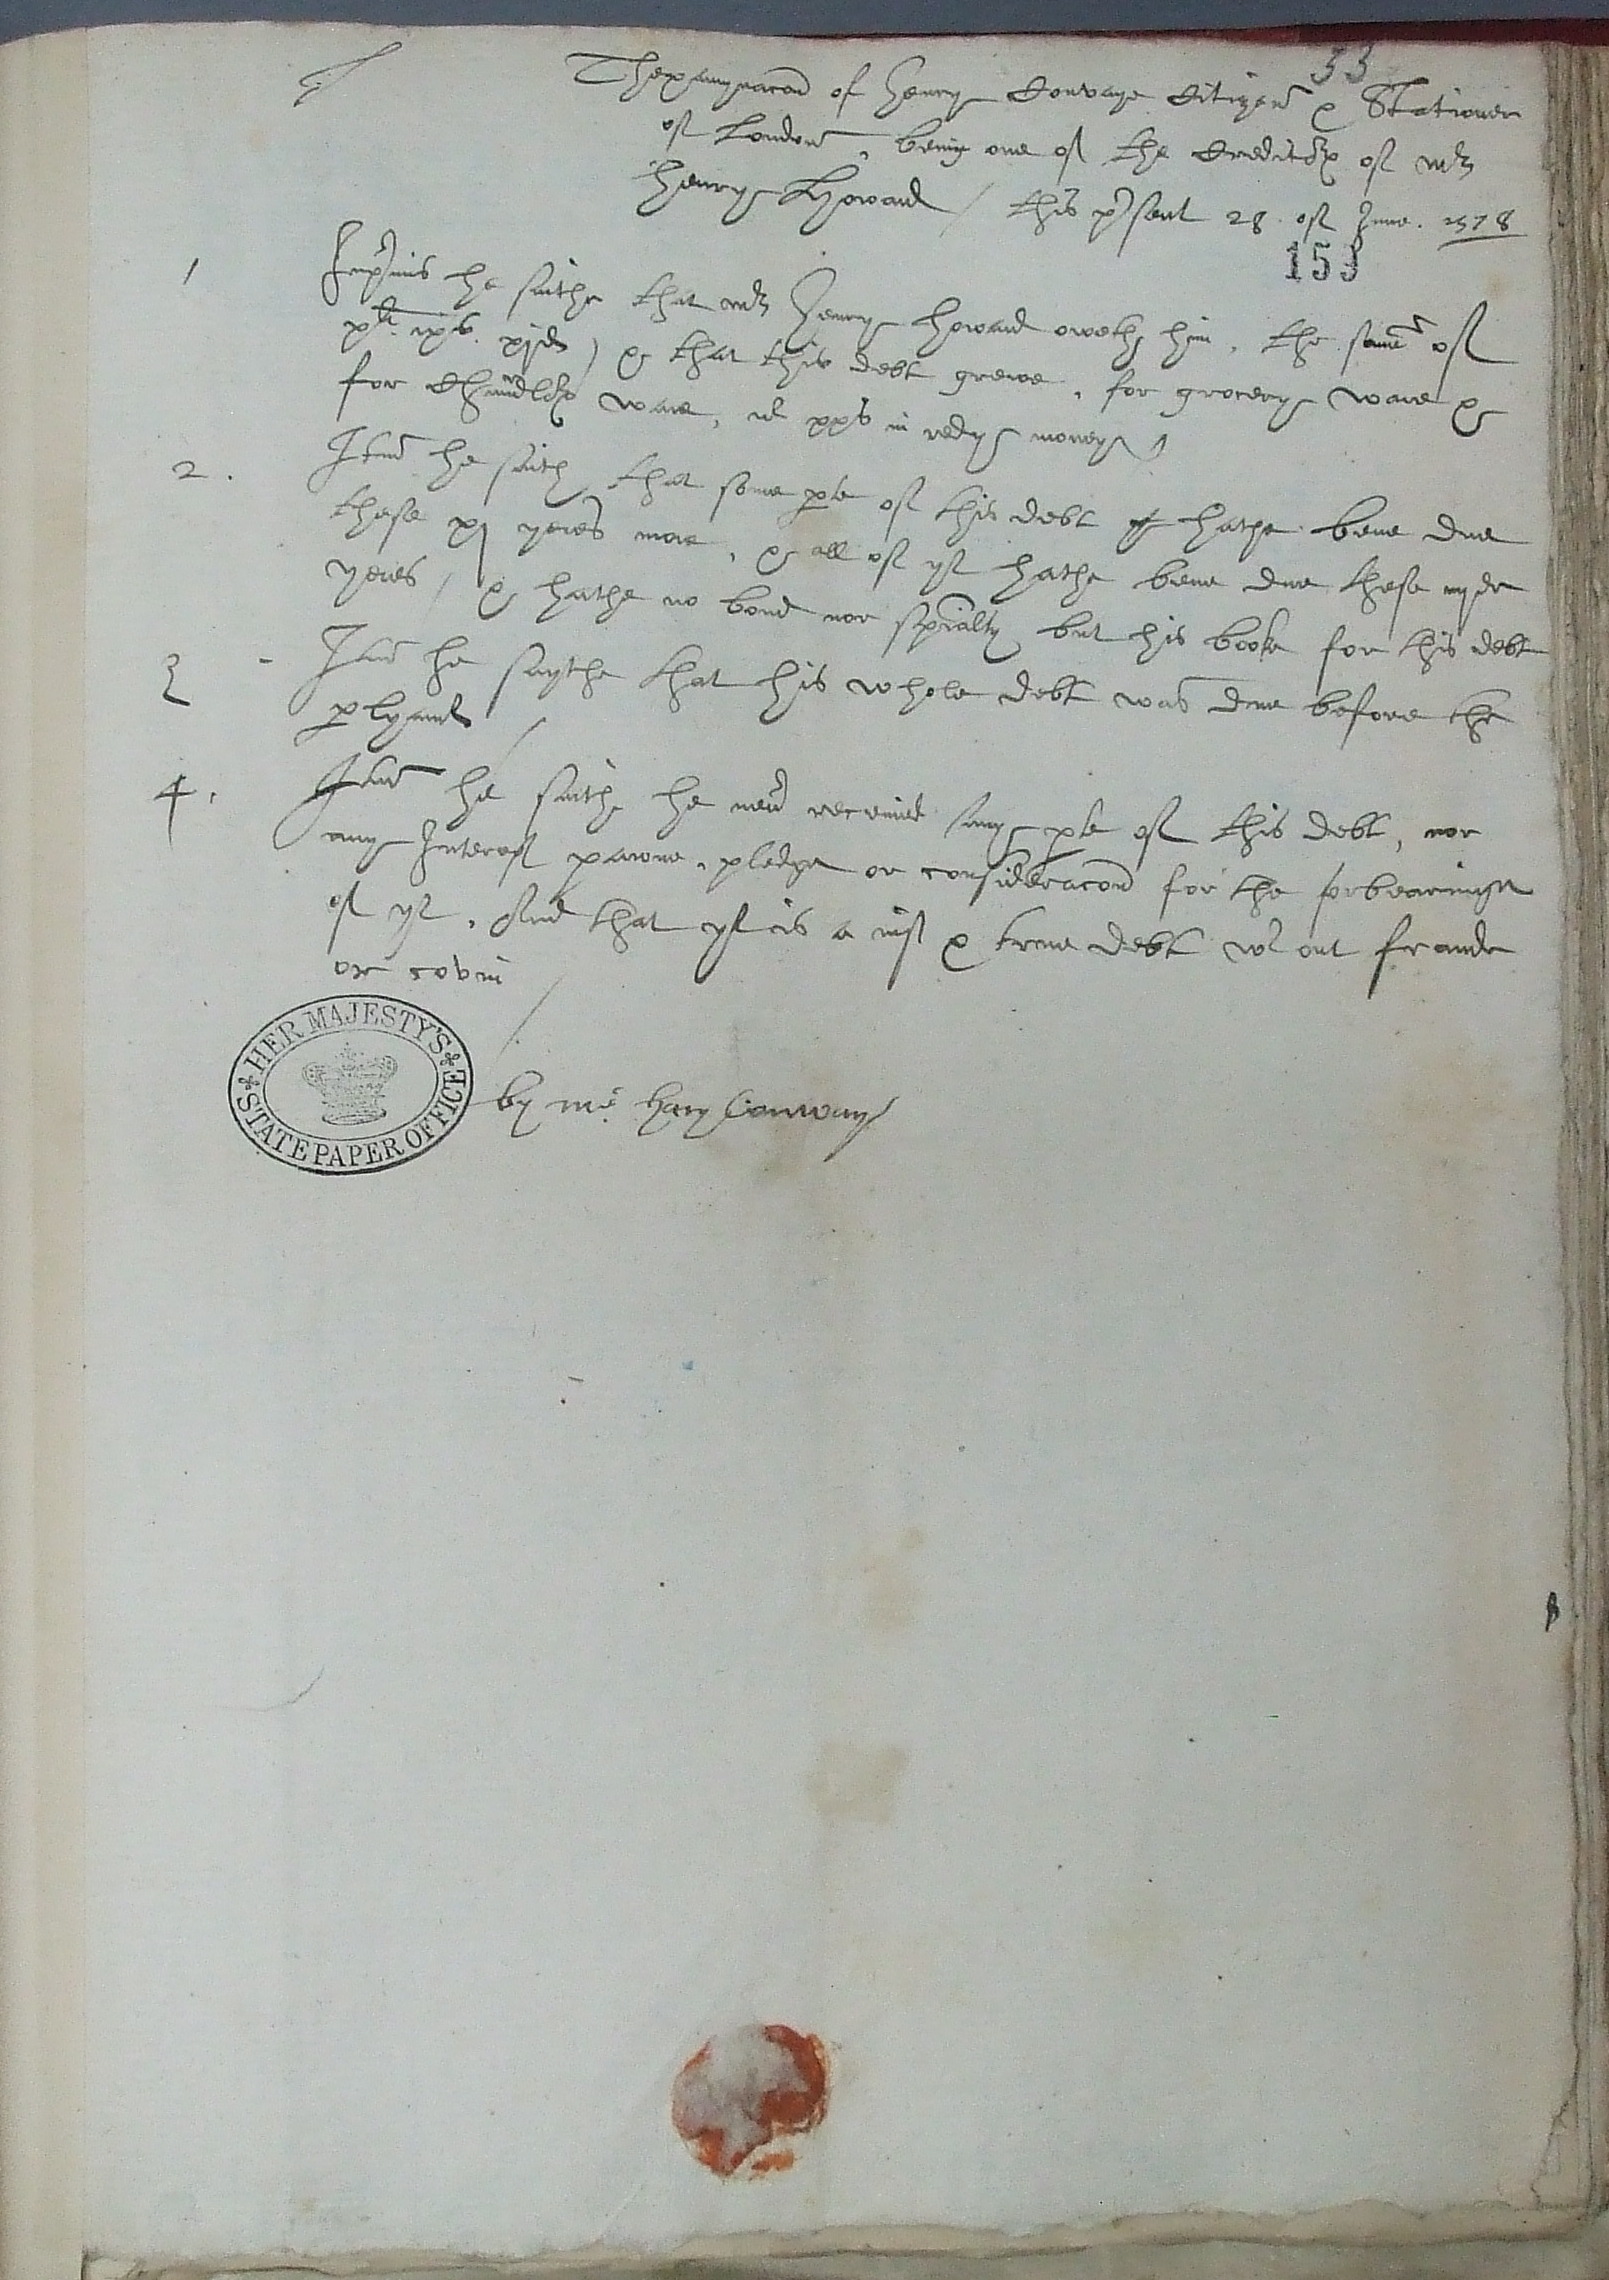 53
Thexamynacon of Henry Convaye Citizen & Stationer
of London, being one of the Creditors of mr
Henry Howard / this present 28. of June. 1578
153
1 Inprimis he saithe that mr Henry Howard oweth him, the some of
xli. ixs. xjd / & that this debt grewe, for grocery ware &
for Chaundlers ware, & xxs in redy money /
2. Item he saith that some pte of this debt hathe bene due
these xj yeres more, & all of yt hathe bene due these
yeres / & hathe no bond nor specialty but his booke for this debt
3 - Item he saythe that his whole debt was due before the
plyament /
4. Item he saith he neuer receiued any pte of this debt, nor
any Interest pawne, pledge or consideracon for the forbearinge
of yt, And that yt is a iust & trewe debt wt out fraude
or covin /
HER MAJESTY'S STATE PAPER OFFICE
by me hary Conway